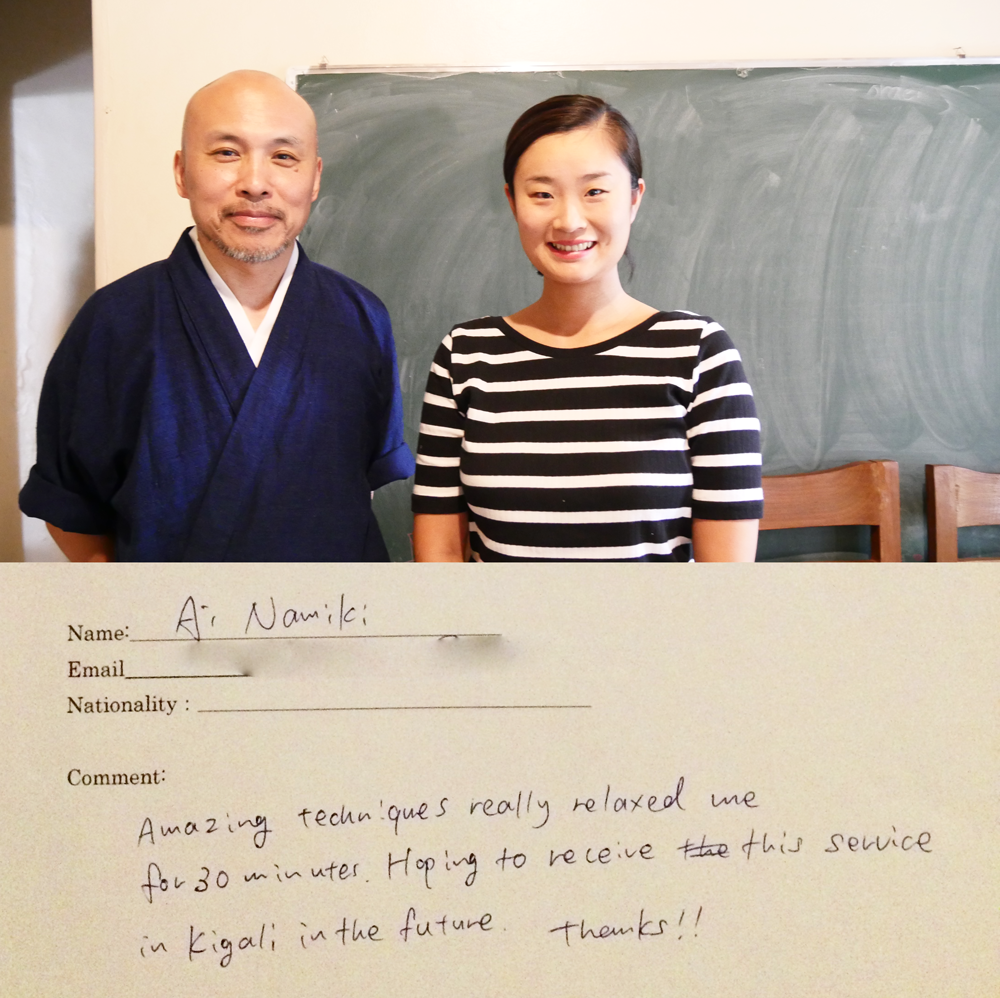 Name: Ai Namiki
Email
Nationality :
Comment:
Amazing techniques really relaxed me
for 30 minutes. Hoping to receive the this service
in Kigali in the future. Thanks!!